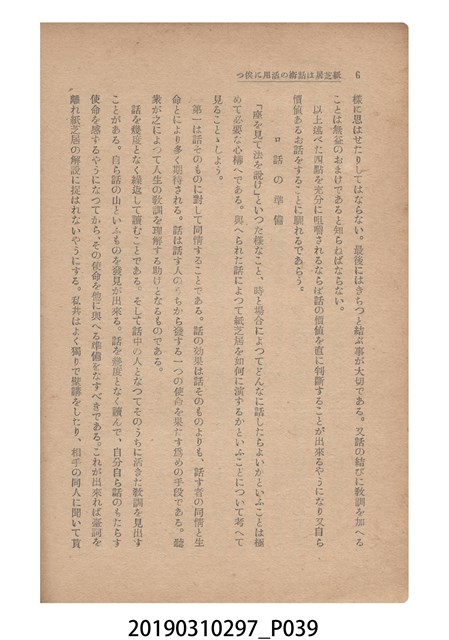 6　紙芝居は話術の活用に俟つ
樣に思はせたりしてはならない。最後にはきちつと結ぶ事が大切である。又話の結びに敎訓を加へる
ことは無益のおまけであると知らねばならない。
以上述べた四點を充分に咀嚼されるならば話の價値を直に判斷することが出來るやうになり又自ら
價値あるお話をすることに馴れるであらう。
ロ　話の準備
「座を見て法を說け」といつた樣なこと、時と場合によつてどんなに話したらよいかといふことは極
めて必要な心構へである。與へられた話によつて紙芝居を如何に演ずるかといふことについて考へて
見ることゝしよう。
第一は話そのものに對して同情することである。話の効果は話そのものよりも、話す者の同情と生
命とにより多く期待される。話は話す人のうちから發する一つの使命を果たす爲めの手段である。聽
衆が之によつて人生の敎訓を理解する助けとなるものである。
話を幾度となく繰返して讀むことである。そして話中の人となつてそのうちに活きた敎訓を見出す
ことがある。自ら話の山といふものを發見が出來る。話を幾度となく讀んで、自分自ら話のもたらす
使命を感ずるやうになつてから、その使命を他に與へる準備をなすべきである。これが出來れば臺詞を
離れ紙芝居の解說に捉はれないやうにする。私共はよく獨りで壁諦をしたり、相手の同人に聞いて貰
20190310297_P039